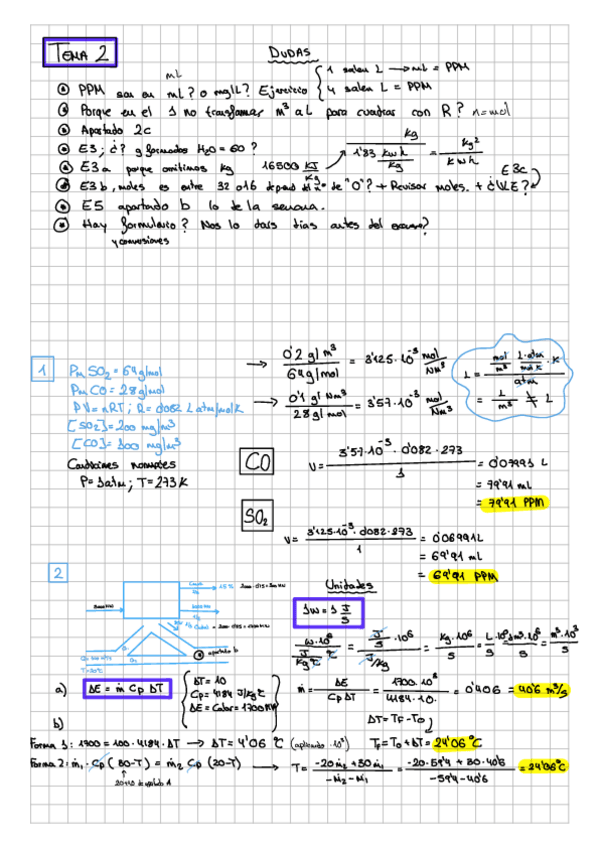 TEMA 2
DUDAS
mL
PPM son en mL? o mg/L? Ejercicio
1 salen L → mL = PPM
4 salen L = PPM
Porque en el 1 no transformar m³ a L para cuadrar con R? n=mol
Apartado 2c
E3; ¿? g formados H₂O = 60?
E3a porque omitimos kg 16500 KJ/Kg
kg / 1'83 kwh/kg = kg²/kwh
E3b, moles es entre 32 o 16 depend del nº de "O"? + Revisar moles. + ¿ E?
E3c
E5 apartado b lo de la semana.
Hay formulario? Nos lo dais dias antes del examen?
y conversiones
1
Pm SO₂ = 64 g/mol
Pm CO = 28 g/mol
PV = nRT; R = 0'082 L atm/mol K
[SO₂] = 200 mg/m³
[CO] = 100 mg/m³
Condiciones normales
P = 1 atm; T = 273 K
→ 0'2 g/m³ / 64 g/mol = 3'125·10⁻³ mol/Nm³
→ 0'1 g/Nm³ / 28 g/mol = 3'57·10⁻³ mol/Nm³
L = mol/m³ · L·atm/mol·K · K / atm
= L/m³ ≠ L
CO
V = 3'57·10⁻³ · 0'082 · 273 / 1 = 0'07991 L
= 79'91 mL
= 79'91 PPM
SO₂
V = 3'125·10⁻³ · 0'082 · 273 / 1 = 0'06991 L
= 69'91 mL
= 69'91 PPM
2
Unidades
1W = 1 J/s
W·10⁶ / J/Kg ℃ · ℃ = J/s · 10⁶ / J/Kg = Kg·10⁶/s = L·10⁶/s = m³·10³/s
apartado b
a) ΔE = ṁ Cp ΔT
ΔT = 10
Cp = 4184 J/kg ℃
ΔE = Calor = 1700 KW
ṁ = ΔE / Cp ΔT = 1700·10⁶ / 4184·10 = 0'406 = 40'6 m³/s
b)
ΔT = TF - TO
Forma 1: 1700 = 100·4184·ΔT → ΔT = 4'06 ℃ (aplicando 10³) TF = TO + ΔT = 24'06 ℃
Forma 2: ṁ₁·Cp (30-T) = ṁ₂ Cp (20-T) → T = -20ṁ₂ + 30ṁ₁ / -ṁ₂ - ṁ₁ = -20·59'4 + 30·40'6 / -59'4 - 40'6 = 24'06 ℃
20+10 de apartado A